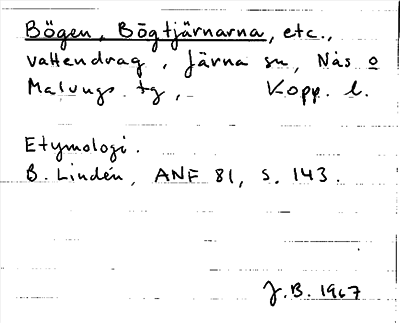 Bögen, Bögtjärnarna, etc.,
vattendrag, Järna sn, Nås o
Malungs tg, Kopp. l.
Etymologi.
B. Lindén, ANF 81, s. 143.
J.B. 1967